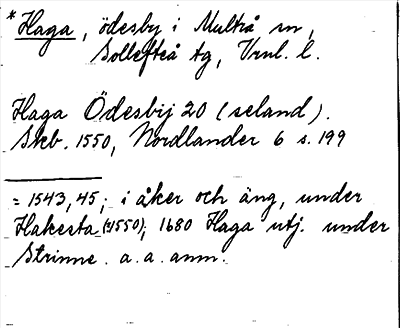 *Haga, ödesby i Multrå sn,
Sollefteå tg, Vnl. l.
Haga Ödesbij 20 (seland).
Skb. 1550, Nordlander 6 s. 199
= 1543, 45; i åker och äng, under
Hakesta (=1550); 1680 Haga utj. under
Strinne. a. a. anm.